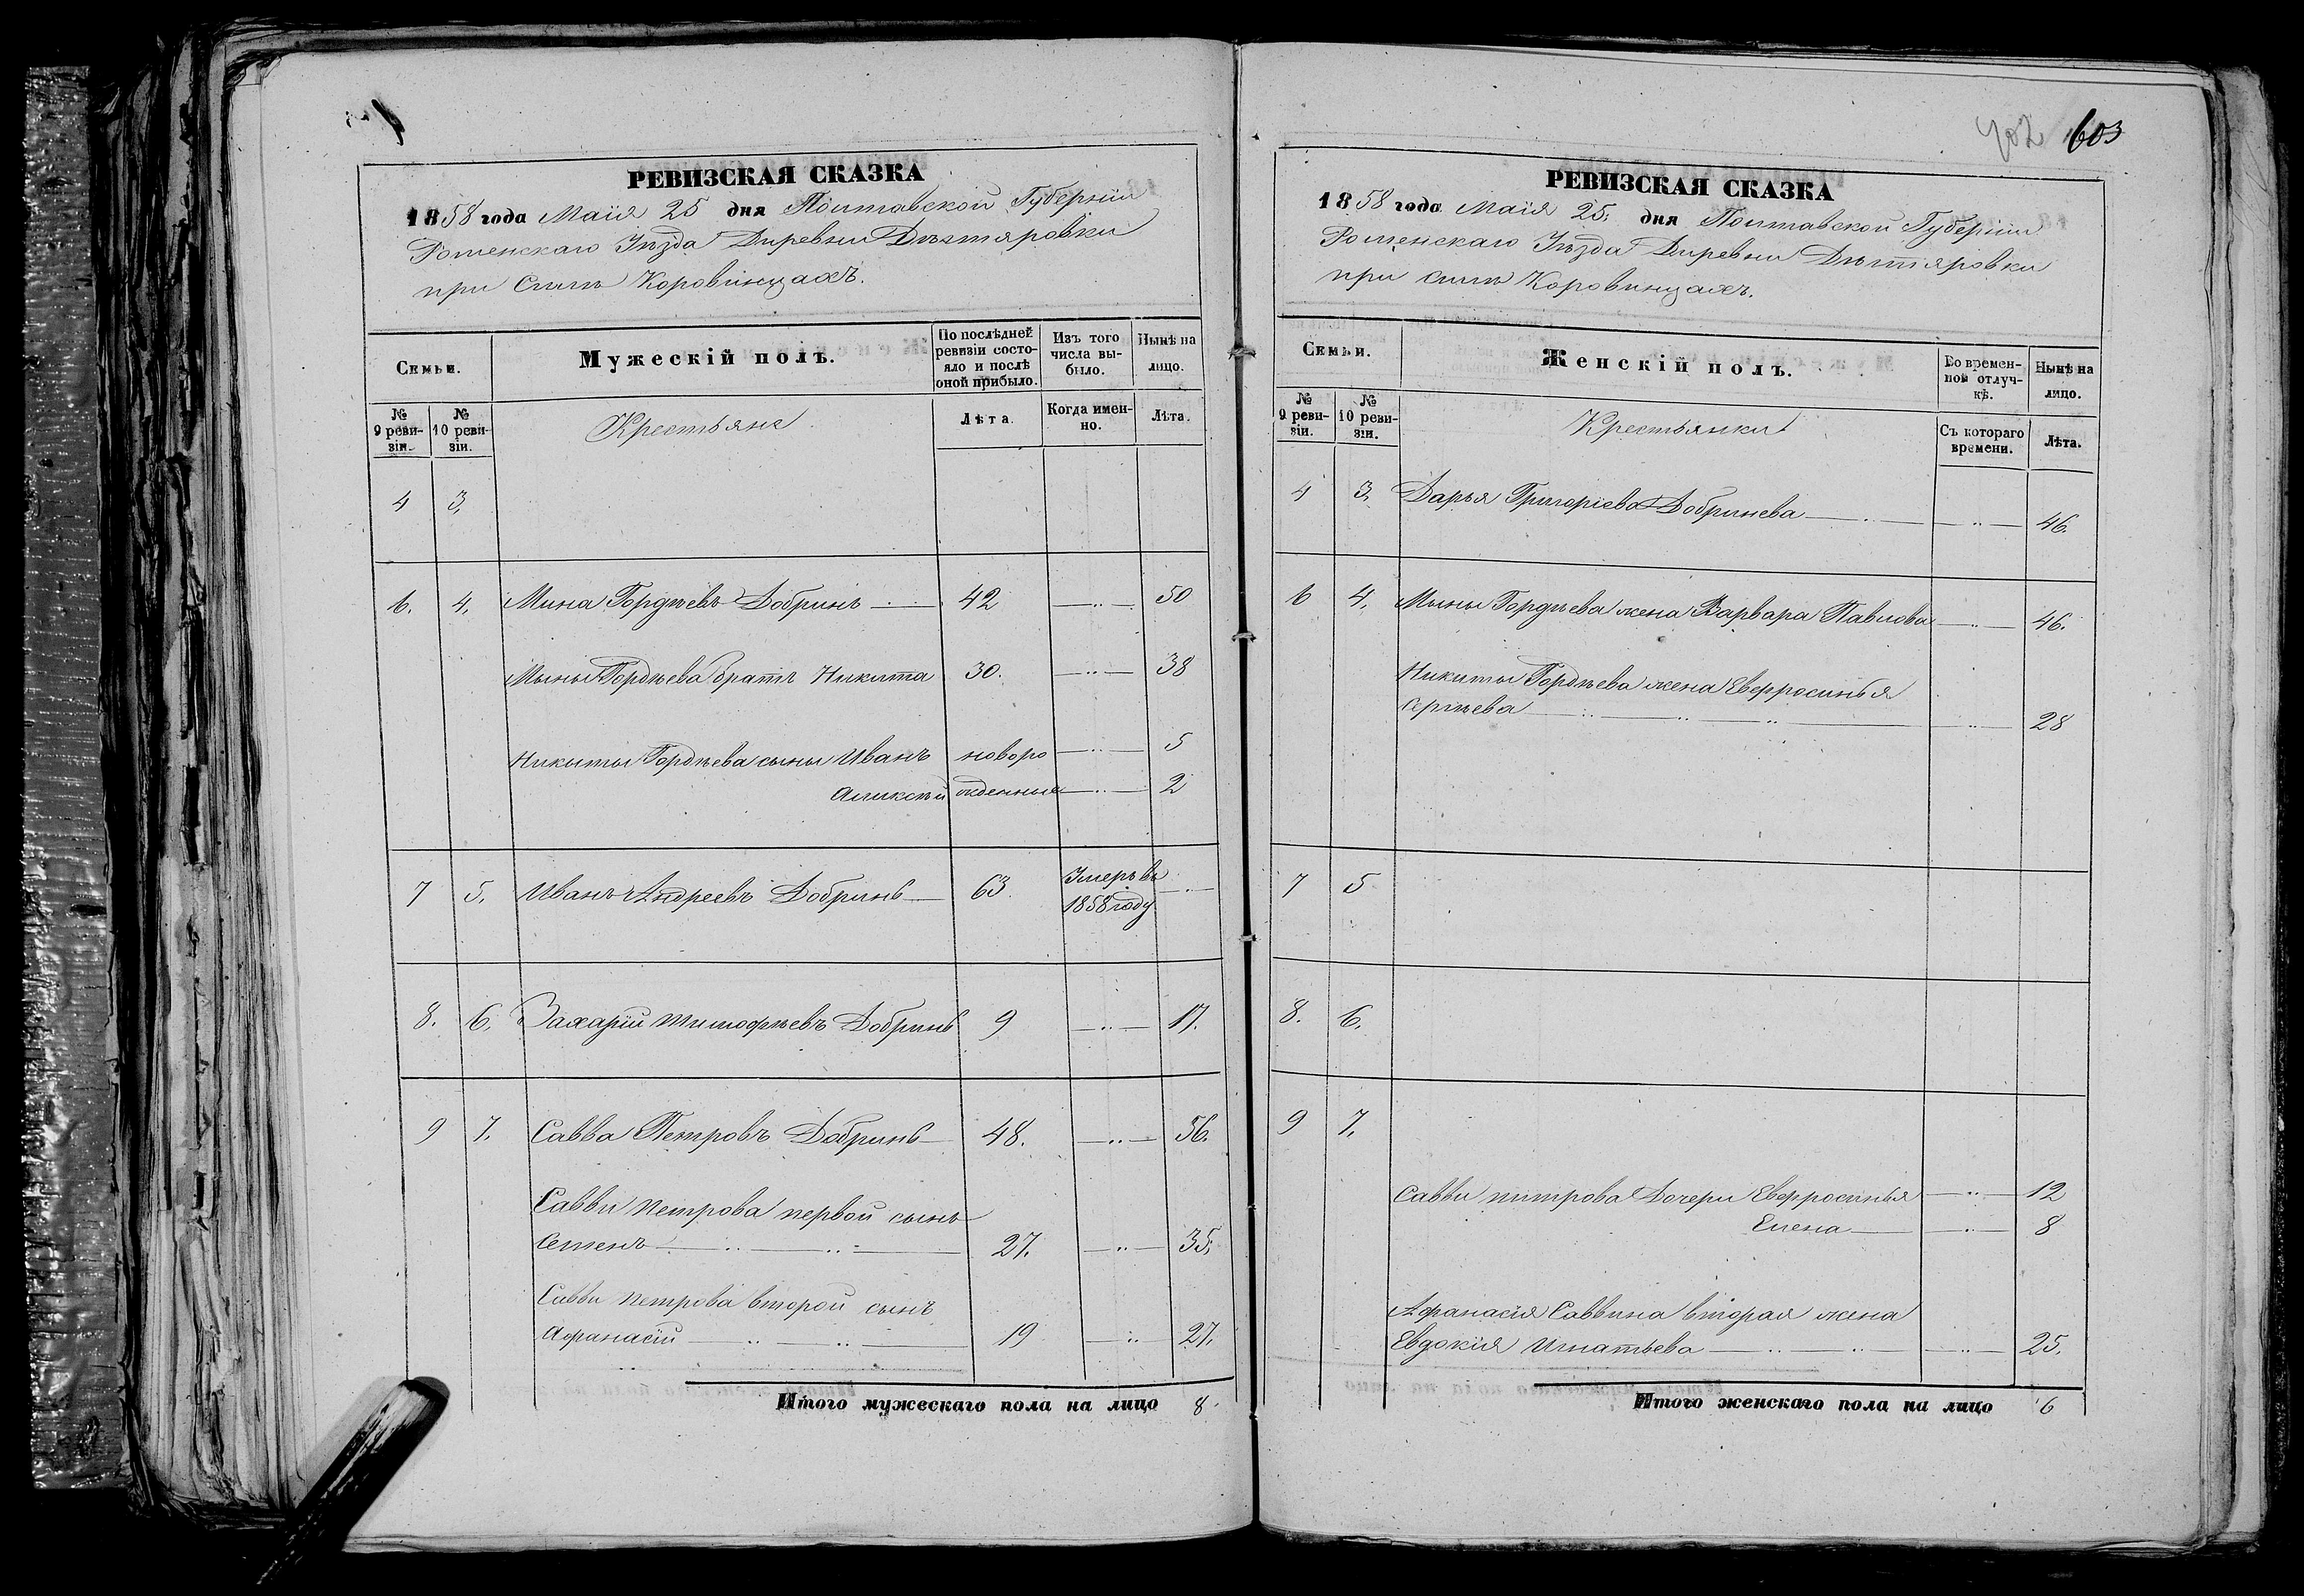 РЕВИЗСКАЯ СКАЗКА
1858 года Маія 25 дня Полтавской Губерніи
Роменскаго Уѣзда Диревни Дѣхтяровки
при Силѣ Коровинцахъ.
Семьи.
Мужескій полъ.
По послѣдней ревизіи состояло и послѣ оной прибыло.
Изъ того числа выбыло.
Нынѣ на лицо.
№ 9 ревизіи.
№ 10 ревизіи.
Крестьяне
Лѣта.
Когда именно.
Лѣта.
4 3,
6. 4, Мина Гордѣевъ Добринь 42 50
Мыны Гордѣева братъ Никита 30. 38
Никиты Гордѣева сыны Иванъ новоро 5
Аликсѣй жденные 2
7 5, Иванъ Андреевъ Добринь 63 Умеръ въ
1858 году
8. 6, Захарій Тимофѣевъ Добринь 9 17.
9 7. Савва Петровъ Добринь 48. 56.
Савви Петрова первой сынъ
Семенъ 27. 35,
Савви Петрова второй сынъ
Афанасій 19 27.
Итого мужескаго пола на лицо 8
402 603
РЕВИЗСКАЯ СКАЗКА
1858 года Маія 25, дня Полтавской Губерніи
Роменскаго Уѣзда Диревни Дѣхтяровки
при силѣ Коровинцахъ.
Семьи.
Женскій полъ.
Во временной отлучкѣ.
Нынѣ на лицо.
№ 9 ревизіи.
№ 10 ревизіи.
Крестьянки
Съ котораго времени.
Лѣта.
4 3, Дарья Григоріева Добринева 46.
6 4, Мыны Гордѣева жена Варвара Павлова 46.
Никиты Гордѣева жена Еверросинья
Сергѣева 28
7 5
8. 6.
9 7,
Савви питрова Дочери Еверросинья 12
Елена 8
Афанасія Саввина вторая жена
Евдокія Игнатьева 25,
Итого женскаго пола на лицо 6